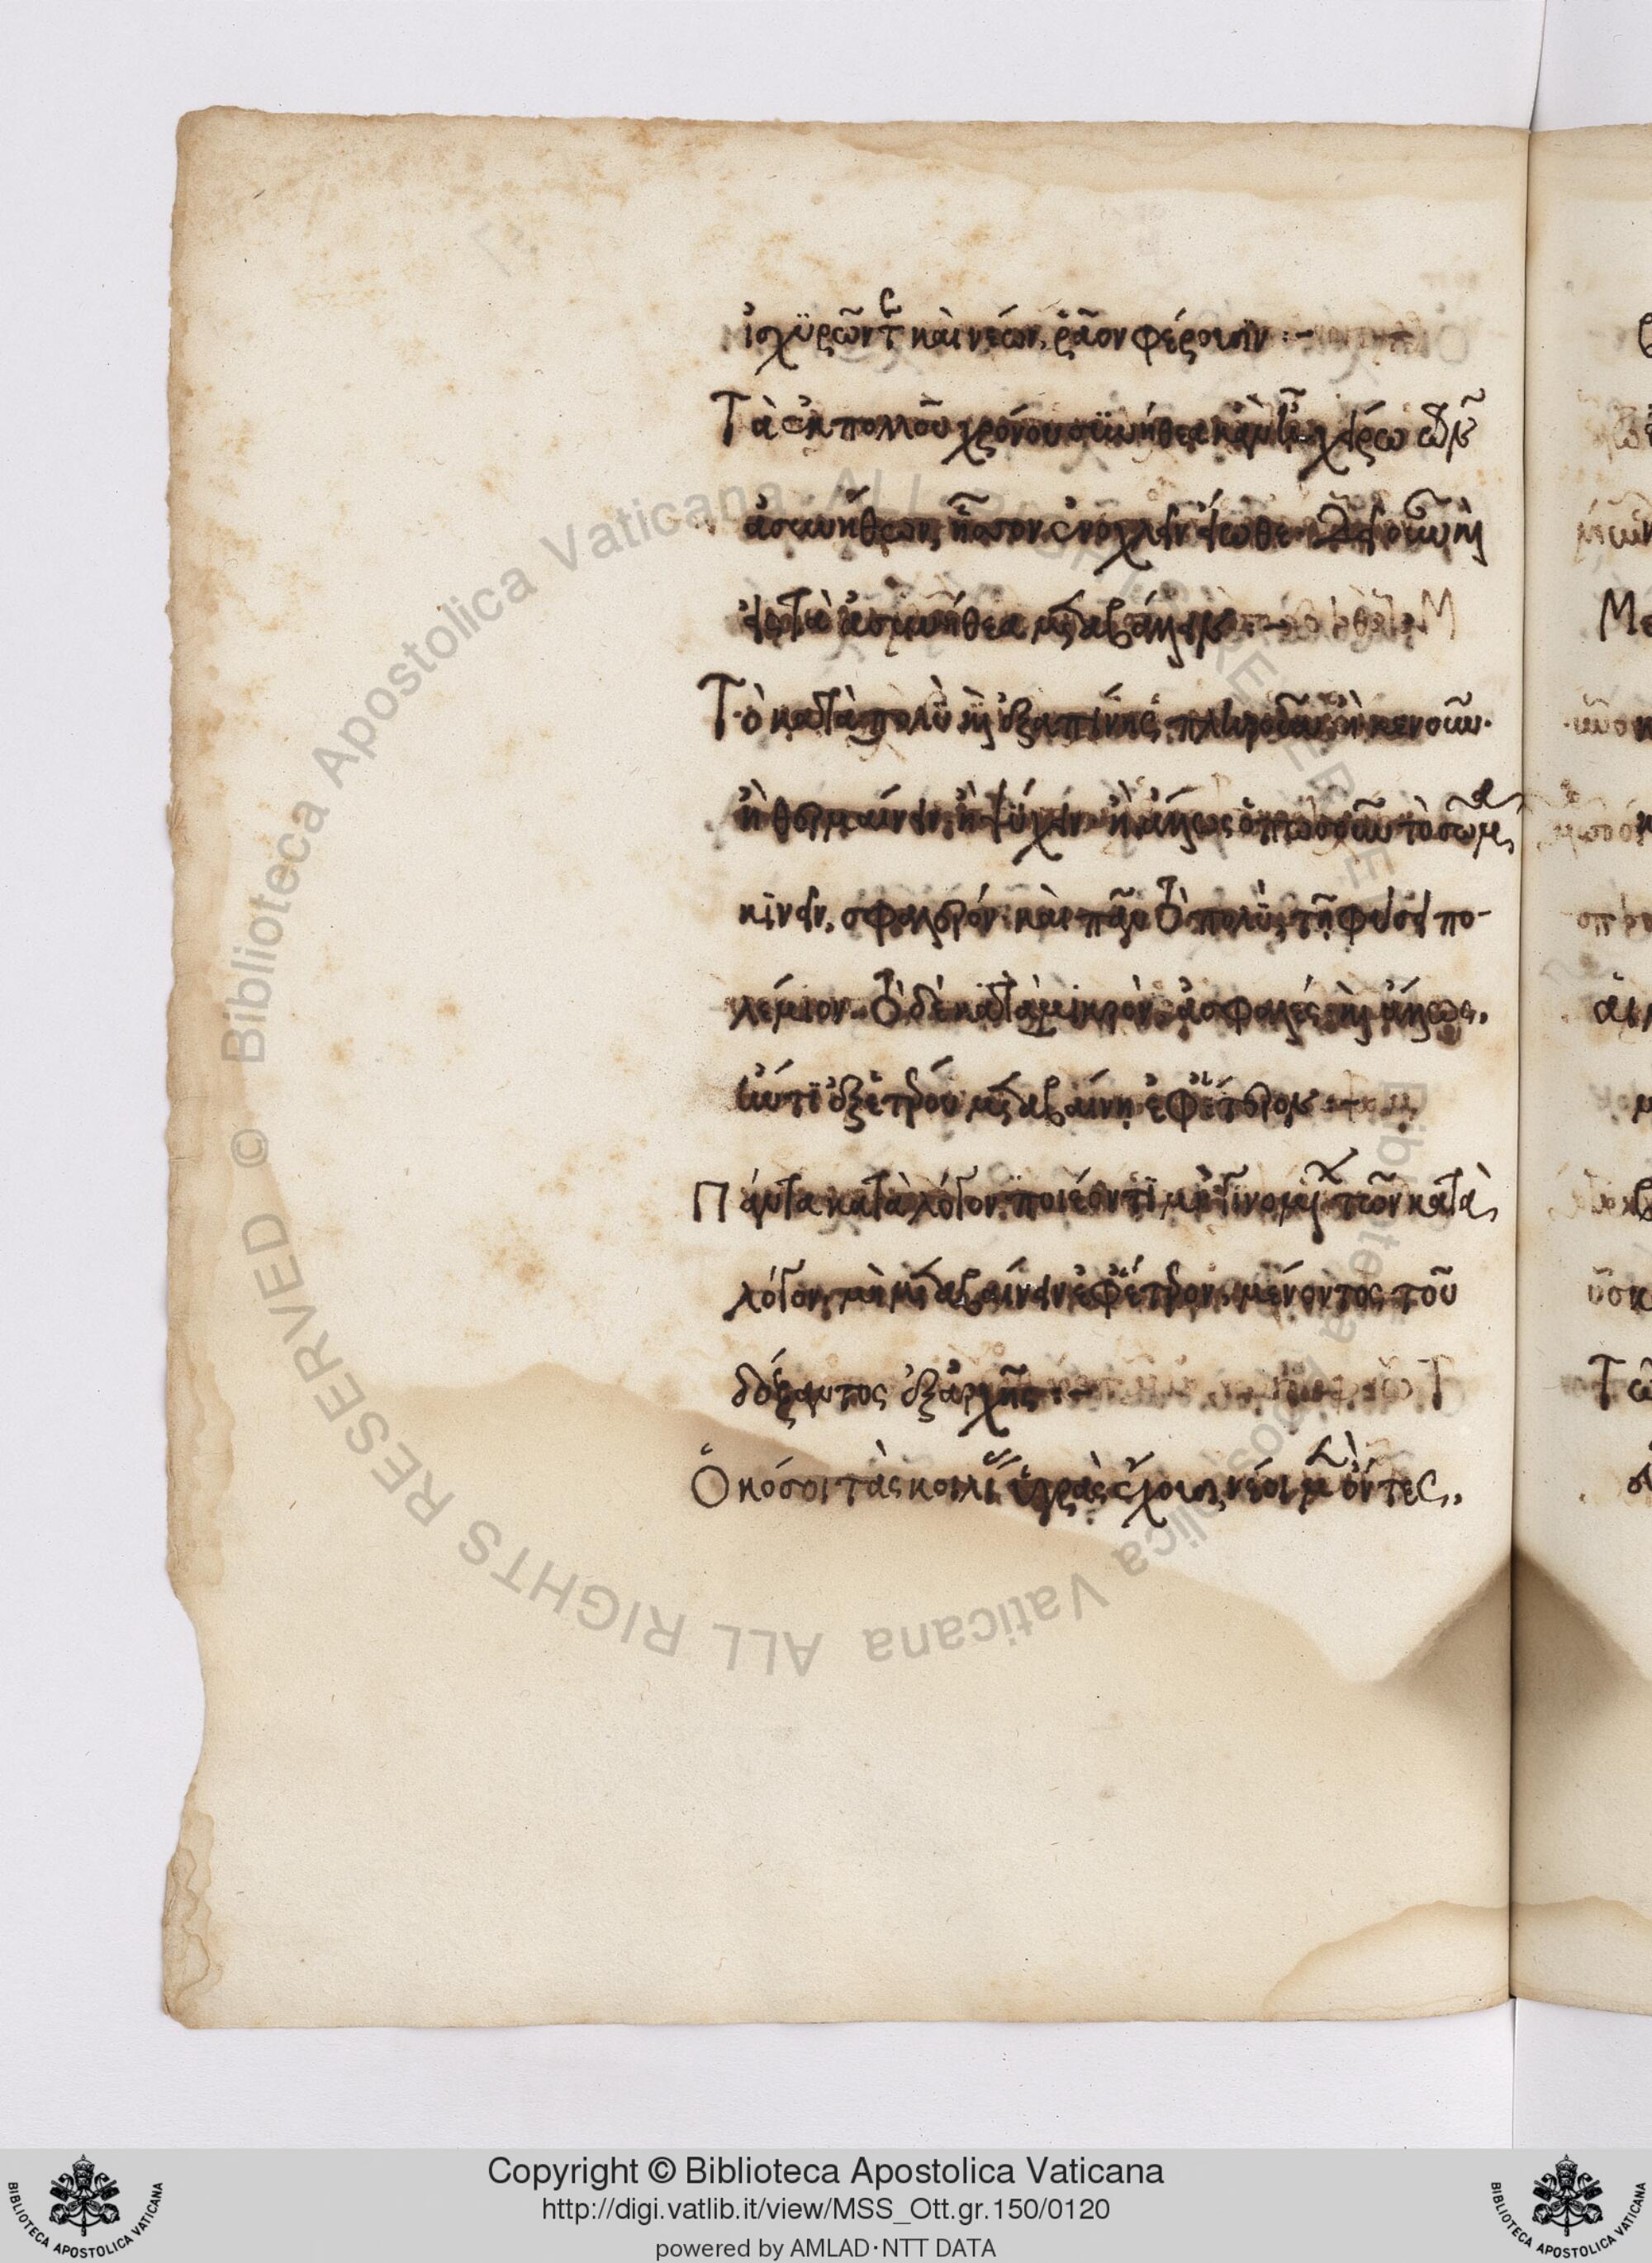 ἰσχυρῶν τε καὶ νέων, ῥᾶον φέρουσιν :-
Τὰ ἐκ πολλοῦ χρόνου συνήθεα κἂν ᾖ χείρω τῶν
ἀσυνήθων, ἧσσον ἐνοχλεῖν εἴωθε· δεῖ οὖν καὶ
ἐς τὰ ἀσυνήθεα μεταβάλλειν :-
Τὸ κατὰ πολὺ καὶ ἐξαπίνης πληροῦν, ἢ κενοῦν·
ἢ θερμαίνειν· ἢ ψύχειν· ἢ ἄλλως ὁπωσοῦν τὸ σῶμα
κινεῖν, σφαλερόν· καὶ πᾶν τὸ πολὺ, τῇ φύσει πο-
λέμιον· τὸ δὲ κατὰ μικρὸν, ἀσφαλές· καὶ ἄλλως,
ἤν τι ἐξ ἑτέρου μεταβαίνῃ ἐφ' ἕτερον :-
Πάντα κατὰ λόγον ποιέοντι, μὴ γινομένων τῶν κατὰ
λόγον, μὴ μεταβαίνειν ἐφ' ἕτερον, μένοντος τοῦ
δόξαντος ἐξ ἀρχῆς :-
Ὁκόσοι τὰς κοιλίας ὑγρὰς ἔχουσι, νέοι μὲν ὄντες,
© Biblioteca Apostolica Vaticana ALL RIGHTS RESERVED
© Biblioteca Apostolica Vaticana ALL RIGHTS RESERVED
Copyright © Biblioteca Apostolica Vaticana
http://digi.vatlib.it/view/MSS_Ott.gr.150/0120
powered by AMLAD·NTT DATA
BIBLIOTECA APOSTOLICA VATICANA
BIBLIOTECA APOSTOLICA VATICANA